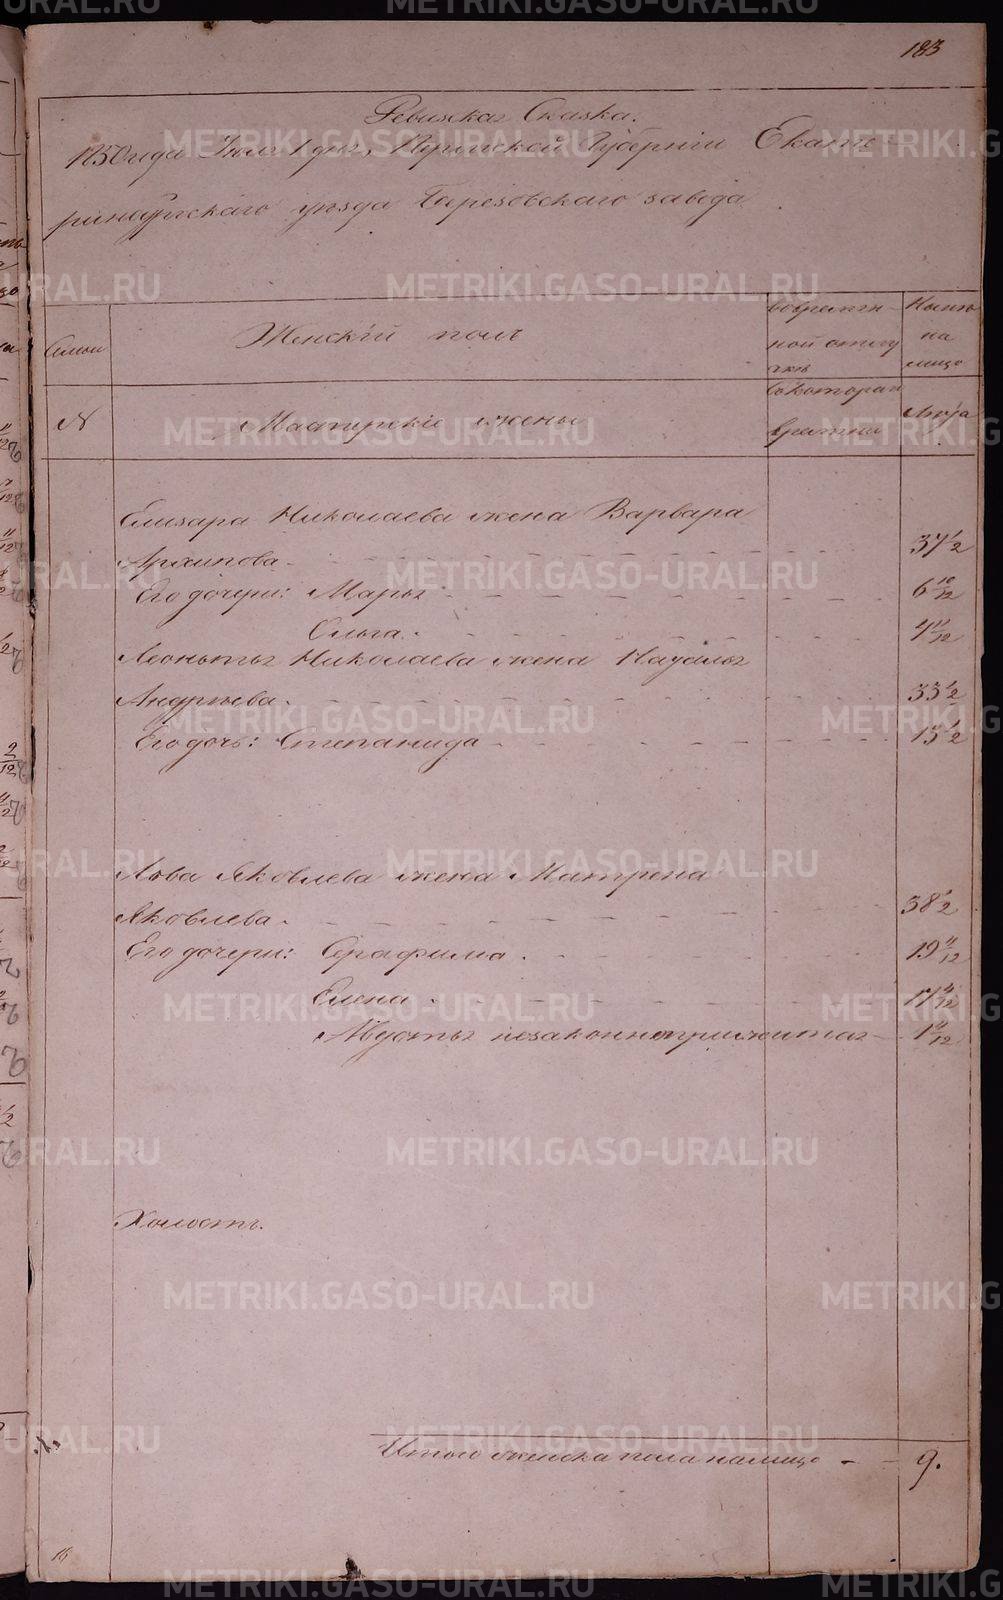 183
Ревизкая Сказка.
1850 года Июля 1 дня, Пермской Губернiи Екате-
ринбургскаго уѣзда Березовскаго завода
Семьи
Женскiй полъ
вовремен-
ной отлу
чкѣ
Нынѣ
на
лицо
N
Мастерскiе жены
Съкотораго
времени
Лѣта
Елизара Николаева жена Варвара
Архипова. 37 1/2
Его дочери: Марья 6 10/12
Ольга. 4 11/12
Леонтья Николаева жена Наталья
Андреева. 33 1/2
Его дочь: Степанида 15 1/2
Льва Яковлева жена Матрена
Яковлева. 38 1/2
Его дочери: Серафима. 19 11/12
Елена. 17 4/12
Авдотья незаконноприжитая 1 11/12
Холостъ.
Итого женска пола налицо - - 9.
16
METRIKI.GASO-URAL.RU